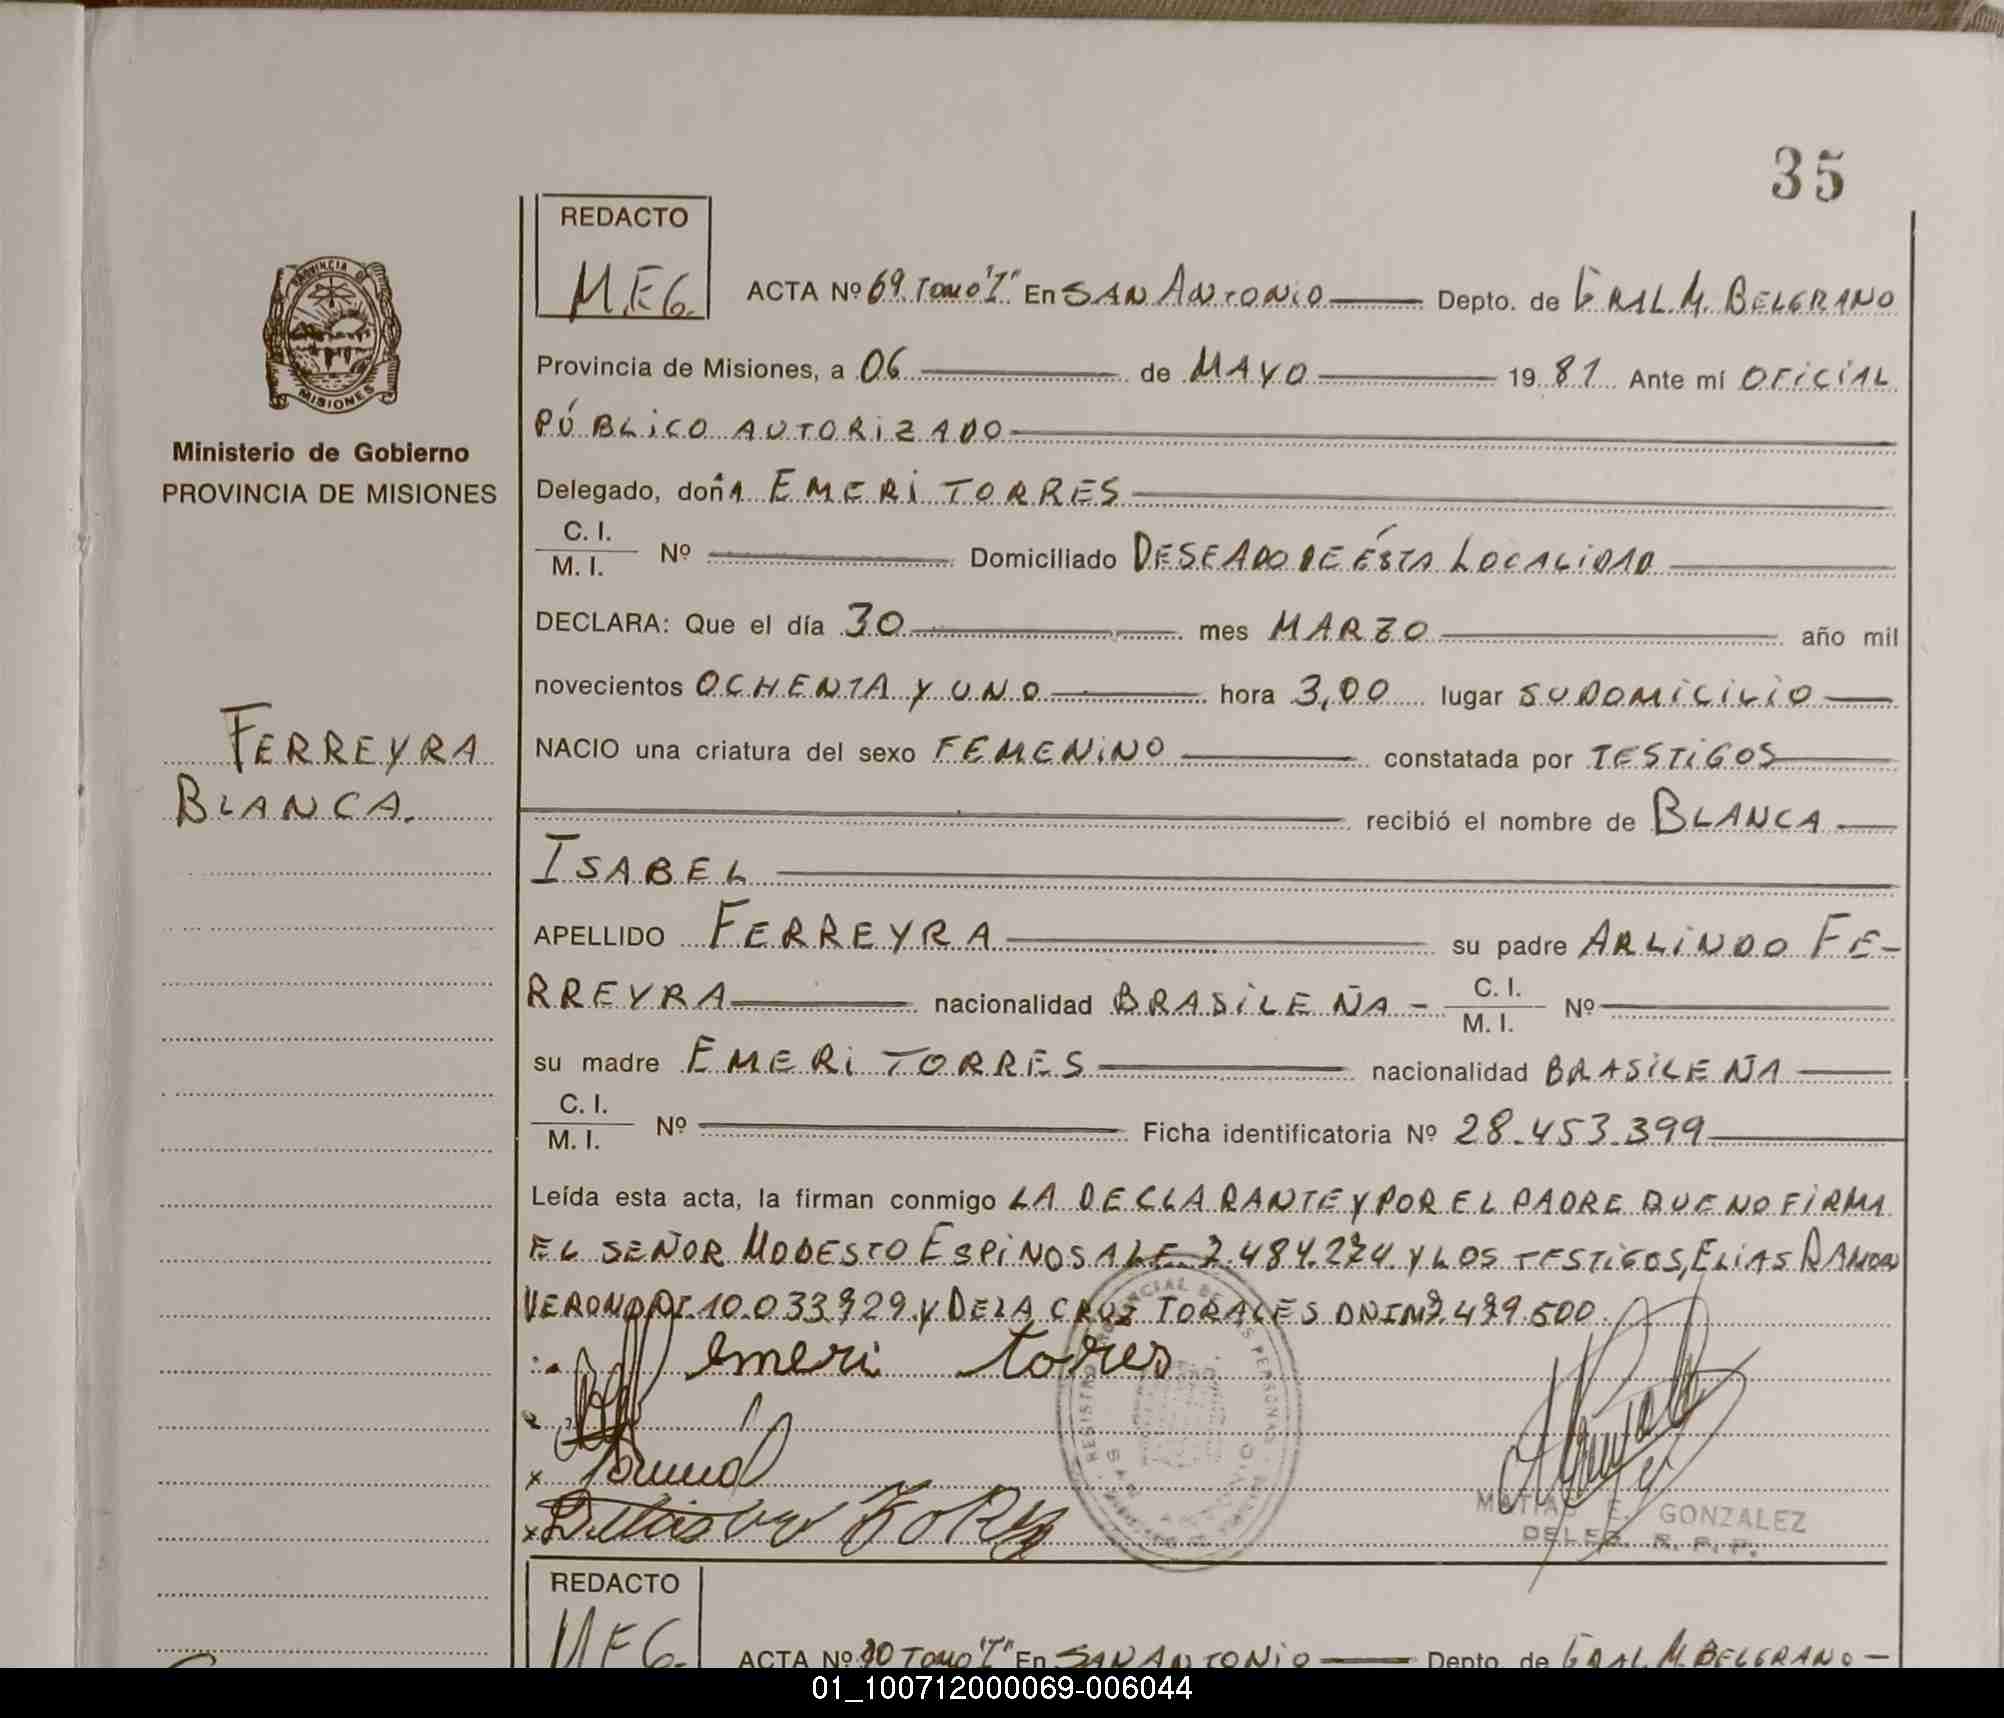 35
REDACTO
M.E.G.
ACTA Nº 69 Tomo "I" En SAN ANTONIO Depto. de GRAL. M. BELGRANO
Provincia de Misiones, a 06 de MAYO 19 81 Ante mí OFICIAL
PÚBLICO AUTORIZADO
Delegado, doñA EMERI TORRES
C. I.
M. I. Nº Domiciliado DESEADO DE ÉSTA LOCALIDAD
DECLARA: Que el día 30 mes MARZO año mil
novecientos OCHENTA Y UNO hora 3,00 lugar SU DOMICILIO
NACIO una criatura del sexo FEMENINO constatada por TESTIGOS
recibió el nombre de BLANCA
ISABEL
APELLIDO FERREYRA su padre ARLINDO FE-
RREYRA nacionalidad BRASILEÑA - C. I.
M. I. Nº
su madre EMERI TORRES nacionalidad BRASILEÑA
C. I.
M. I. Nº Ficha identificatoria Nº 28.453.399
Leída esta acta, la firman conmigo LA DECLARANTE Y POR EL PADRE QUE NO FIRMA
EL SEÑOR MODESTO ESPINOSA L.E. 7.484.274 Y LOS TESTIGOS, ELIAS RAMON
VERON DNI 10.033.729 Y DE LA CRUZ TORALES DNI M 7.479.500
emeri torres
REGISTRO PROVINCIAL DE LAS PERSONAS
SAN ANTONIO
MATIAS E. GONZALEZ
DELEG. R. P. P.
PROVINCIA DE
MISIONES
Ministerio de Gobierno
PROVINCIA DE MISIONES
FERREYRA
BLANCA.
REDACTO
M.E.G.
ACTA Nº 70 Tomo "I" En SAN ANTONIO Depto. de GRAL. M. BELGRANO
01_100712000069-006044